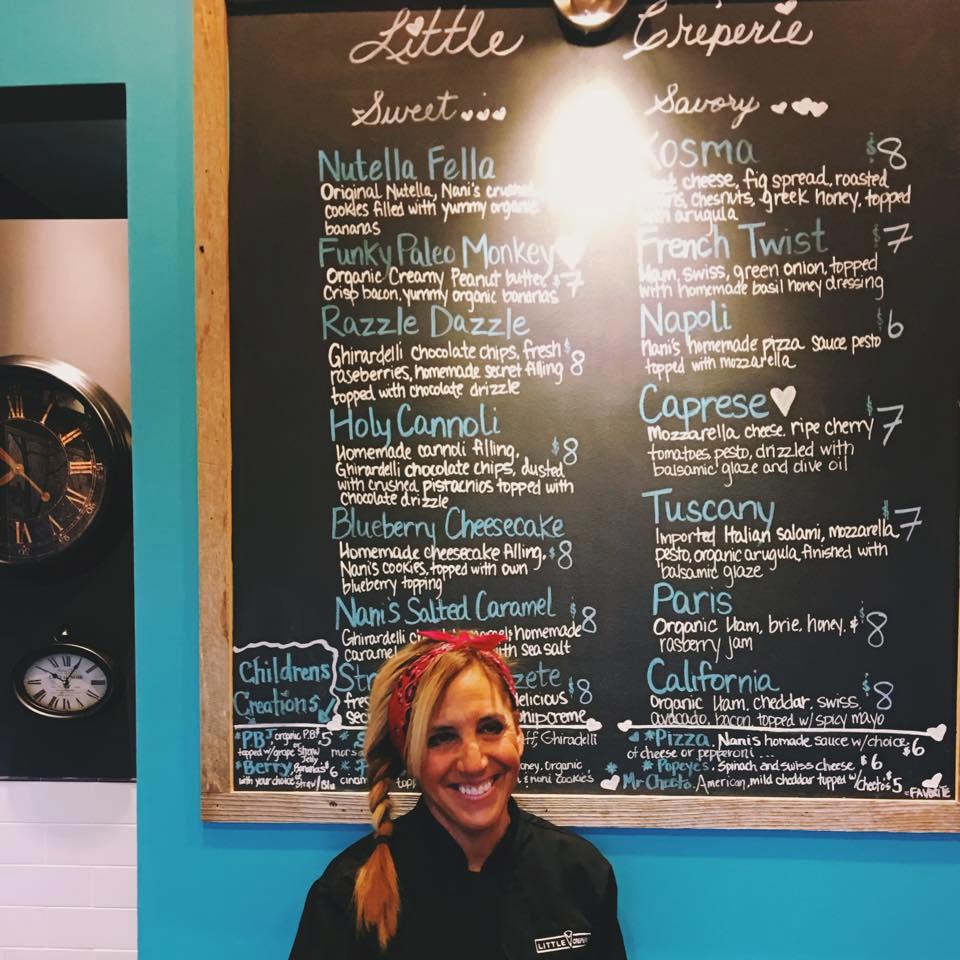 Little Creperie
Sweet...
Nutella Fella
Original Nutella, Nani's crushed
cookies filled with yummy organic
bananas
Funky Paleo Monkey
Organic Creamy Peanut butter, $7
Crisp bacon, yummy organic bananas
Razzle Dazzle
Ghirardelli chocolate chips, fresh $8
raseberries, homemade secret filling
topped with chocolate drizzle
Holy Cannoli
Homemade cannoli filling, $8
Ghirardelli chocolate chips, dusted
with crushed pistachios topped with
chocolate drizzle
Blueberry Cheesecake
Homemade cheesecake filling, $8
Nani's cookies, topped with own
blueberry topping
Nani's Salted Caramel $8
Ghirardelli homemade
caramel with sea salt
$8
Savory
Kosma $8
cheese, fig spread, roasted
chesnuts, greek honey, topped
arugula
French Twist $7
Ham, swiss, green onion, topped
with homemade basil honey dressing
Napoli $6
Nani's homemade pizza sauce pesto
topped with mozzarella
Caprese $7
Mozzarella cheese, ripe cherry
tomatoes, pesto, drizzled with
balsamic glaze and olive oil
Tuscany $7
Imported Italian salami, mozzarella
pesto, organic arugula, finished with
balsamic glaze
Paris $8
Organic Ham, brie, honey, &
rasberry jam
California $8
Organic Ham, cheddar, swiss,
avocado, bacon, topped w/ spicy mayo
Childrens
Creations
*PBJ organic P.B. $5
topped w/grape Straw Jelly
*Berry Bananas $6
with your choice of Straw/Blu
Ghiradelli
organic
& nani cookies
*Pizza. Nani's homade sauce w/choice $6
of cheese or pepperoni...
*Popeye's. Spinach and swiss cheese $6
Mr Cheeto. American, mild cheddar topped w/cheetos $5
=FAVORITE
LITTLE CREPERIE